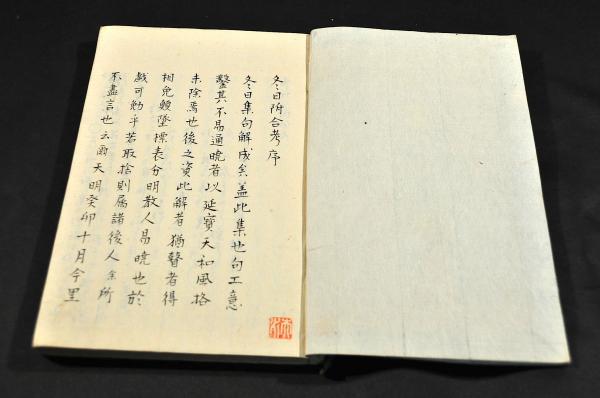 冬日附合考序
冬日集句解成矣蓋此集也句工意
鑿其不易通曉者以延寶天和風格
未除焉也後之資此解者猶瞽者得
相免顛墜標表分明教人易曉也於
戯可勉乎若取捨則属諸後人余所
不盡言也云爾天明癸卯十月今里